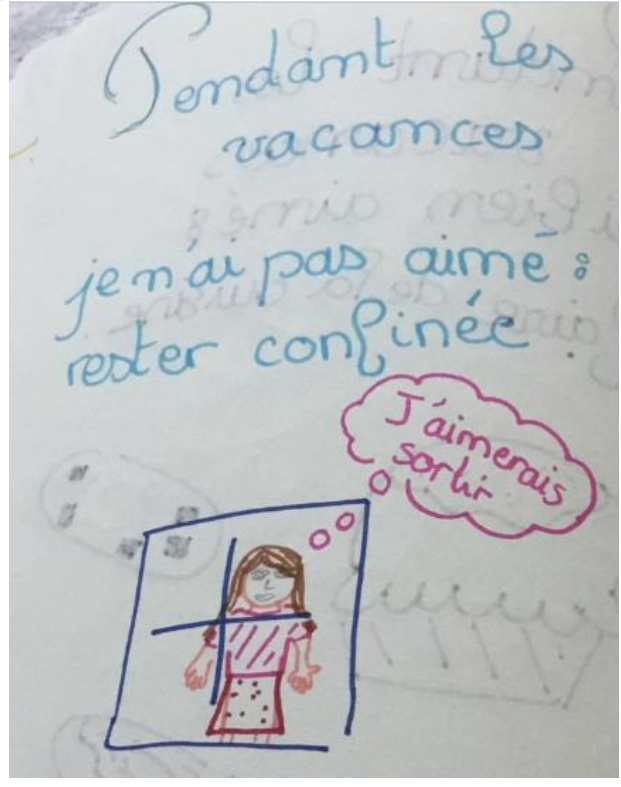 Pendant les
vacances
je n'ai pas aimé :
rester confinée.
J'aimerais
sortir